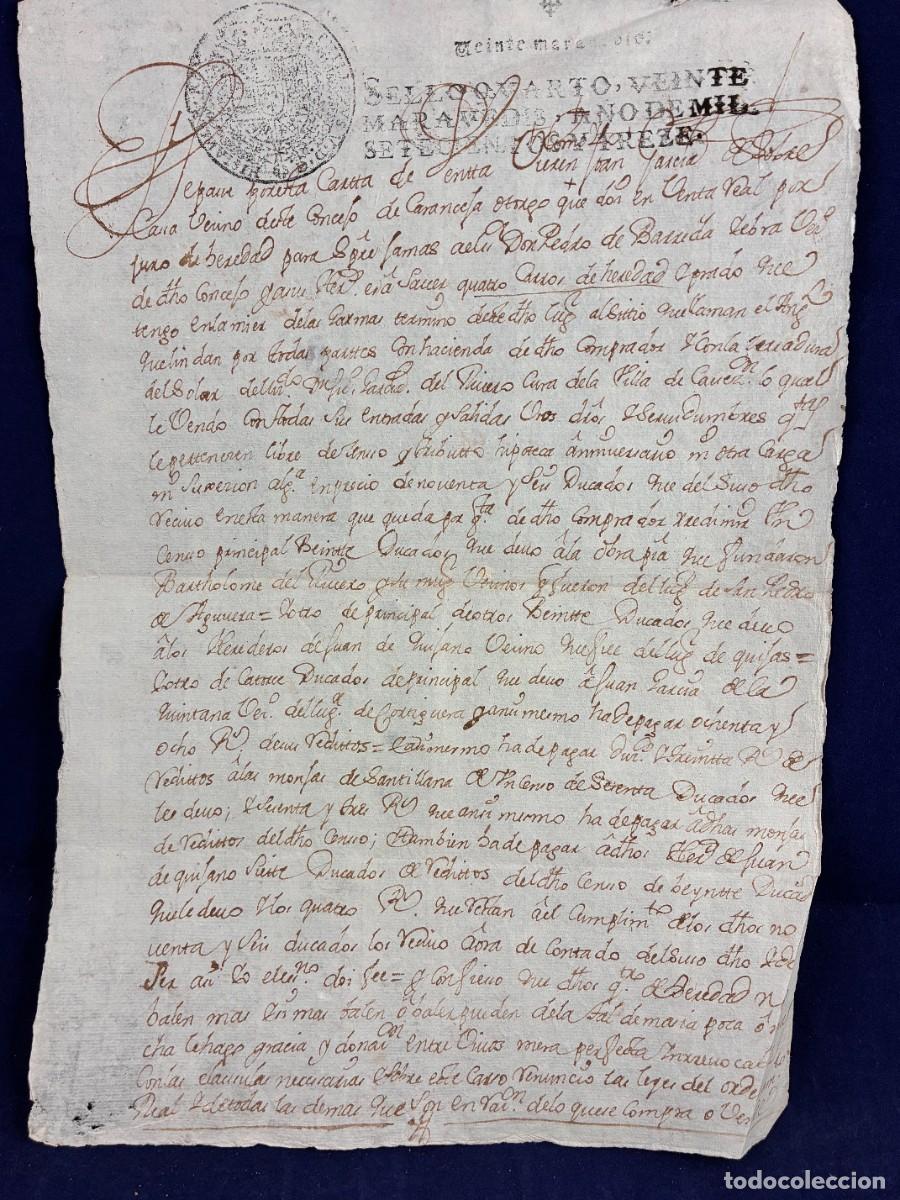 Veinte maravedis.
SELLO QVARTO, VEINTE
MARAVEDIS, AÑO DE MIL
SETECIENTOS Y TREZE.
Sepan por esta Cartta de Ventta Vieren Joan Garcia de
Casa Vecino deste Concejo de Carancexa otorgo que doi en Venta Real por
Juro de heredad para Spre Jamas a el Sr Don Pedro de Barreda Yebra Vec
de dho Concejo y a sus Her. es a Saver quatro Carros de heredad y prado que
tengo en la mier de las Garmas termino deste dho lug al Sitio que llaman el
que lindan por todas partes con hacienda de dho Comprador y con la
del Solar del del Rivero Cura de la Villa de lo qual
le Vendo con todas Sus entradas y Salidas Usos dros y Servidumbres q
le pertenecen libre de Censo y tributto hipoteca anniversario ni otra Carga
ni Superior alg.ª en precio de noventa y Seis Ducados que del Suso dho
recivo en esta manera que queda por q.ta de dho Comprador redimir Un
Censo principal Beintte Ducados que devo a la obra pia que fundaron
Bartholome del Rivero y su mug Vecinos q fueron del lug de San Pedro
de = y otro de principal de otros Beintte Ducados que devo
a los Herederos de Juan de Quijano Vecino que fue del lug de quijas =
Y otro de Catorce Ducados de principal que devo a Juan Garcia de la
quintana Vec. del lug. de Cortiguera y ansimesmo ha de pagar ochenta y
ocho R.s de sus redittos = Y asimesmo ha de pagar y treintta R.s de
redittos a las monjas de Santillana de Un Censo de Setenta Ducados que
les devo; y Setenta y tres R.s que ansi mismo ha de pagar a dhas monjas
de redittos del dho Censo; y tambien ha de pagar a dhos Her.s de Juan
de quijano Siette Ducados de redittos del dho Censo de beyntte Ducad
que le devo y los quatro R.s que restan a el Cumplim.to de los dhos no
venta y Seis ducados los recivo aora de contado del Suso dho y de
Ser asi Yo el es.no doi fee = y confieso que dhos q.tro de heredad no
balen mas y si mas balen o baler pueden de la tal demasia poca o
cha le hago gracia y donaz.n entre Vivos mera perfecta Yrrevocable
Con las clausulas necesarias y Sobre este Caso renuncio las leyes del orde
Real y de todas las demas que Son en raz.n de lo que se Compra o Ven
todocoleccion